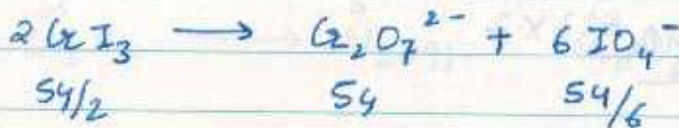 2CrI₃ ⟶ Cr₂O₇²⁻ + 6IO₄⁻
54/2 54 54/6